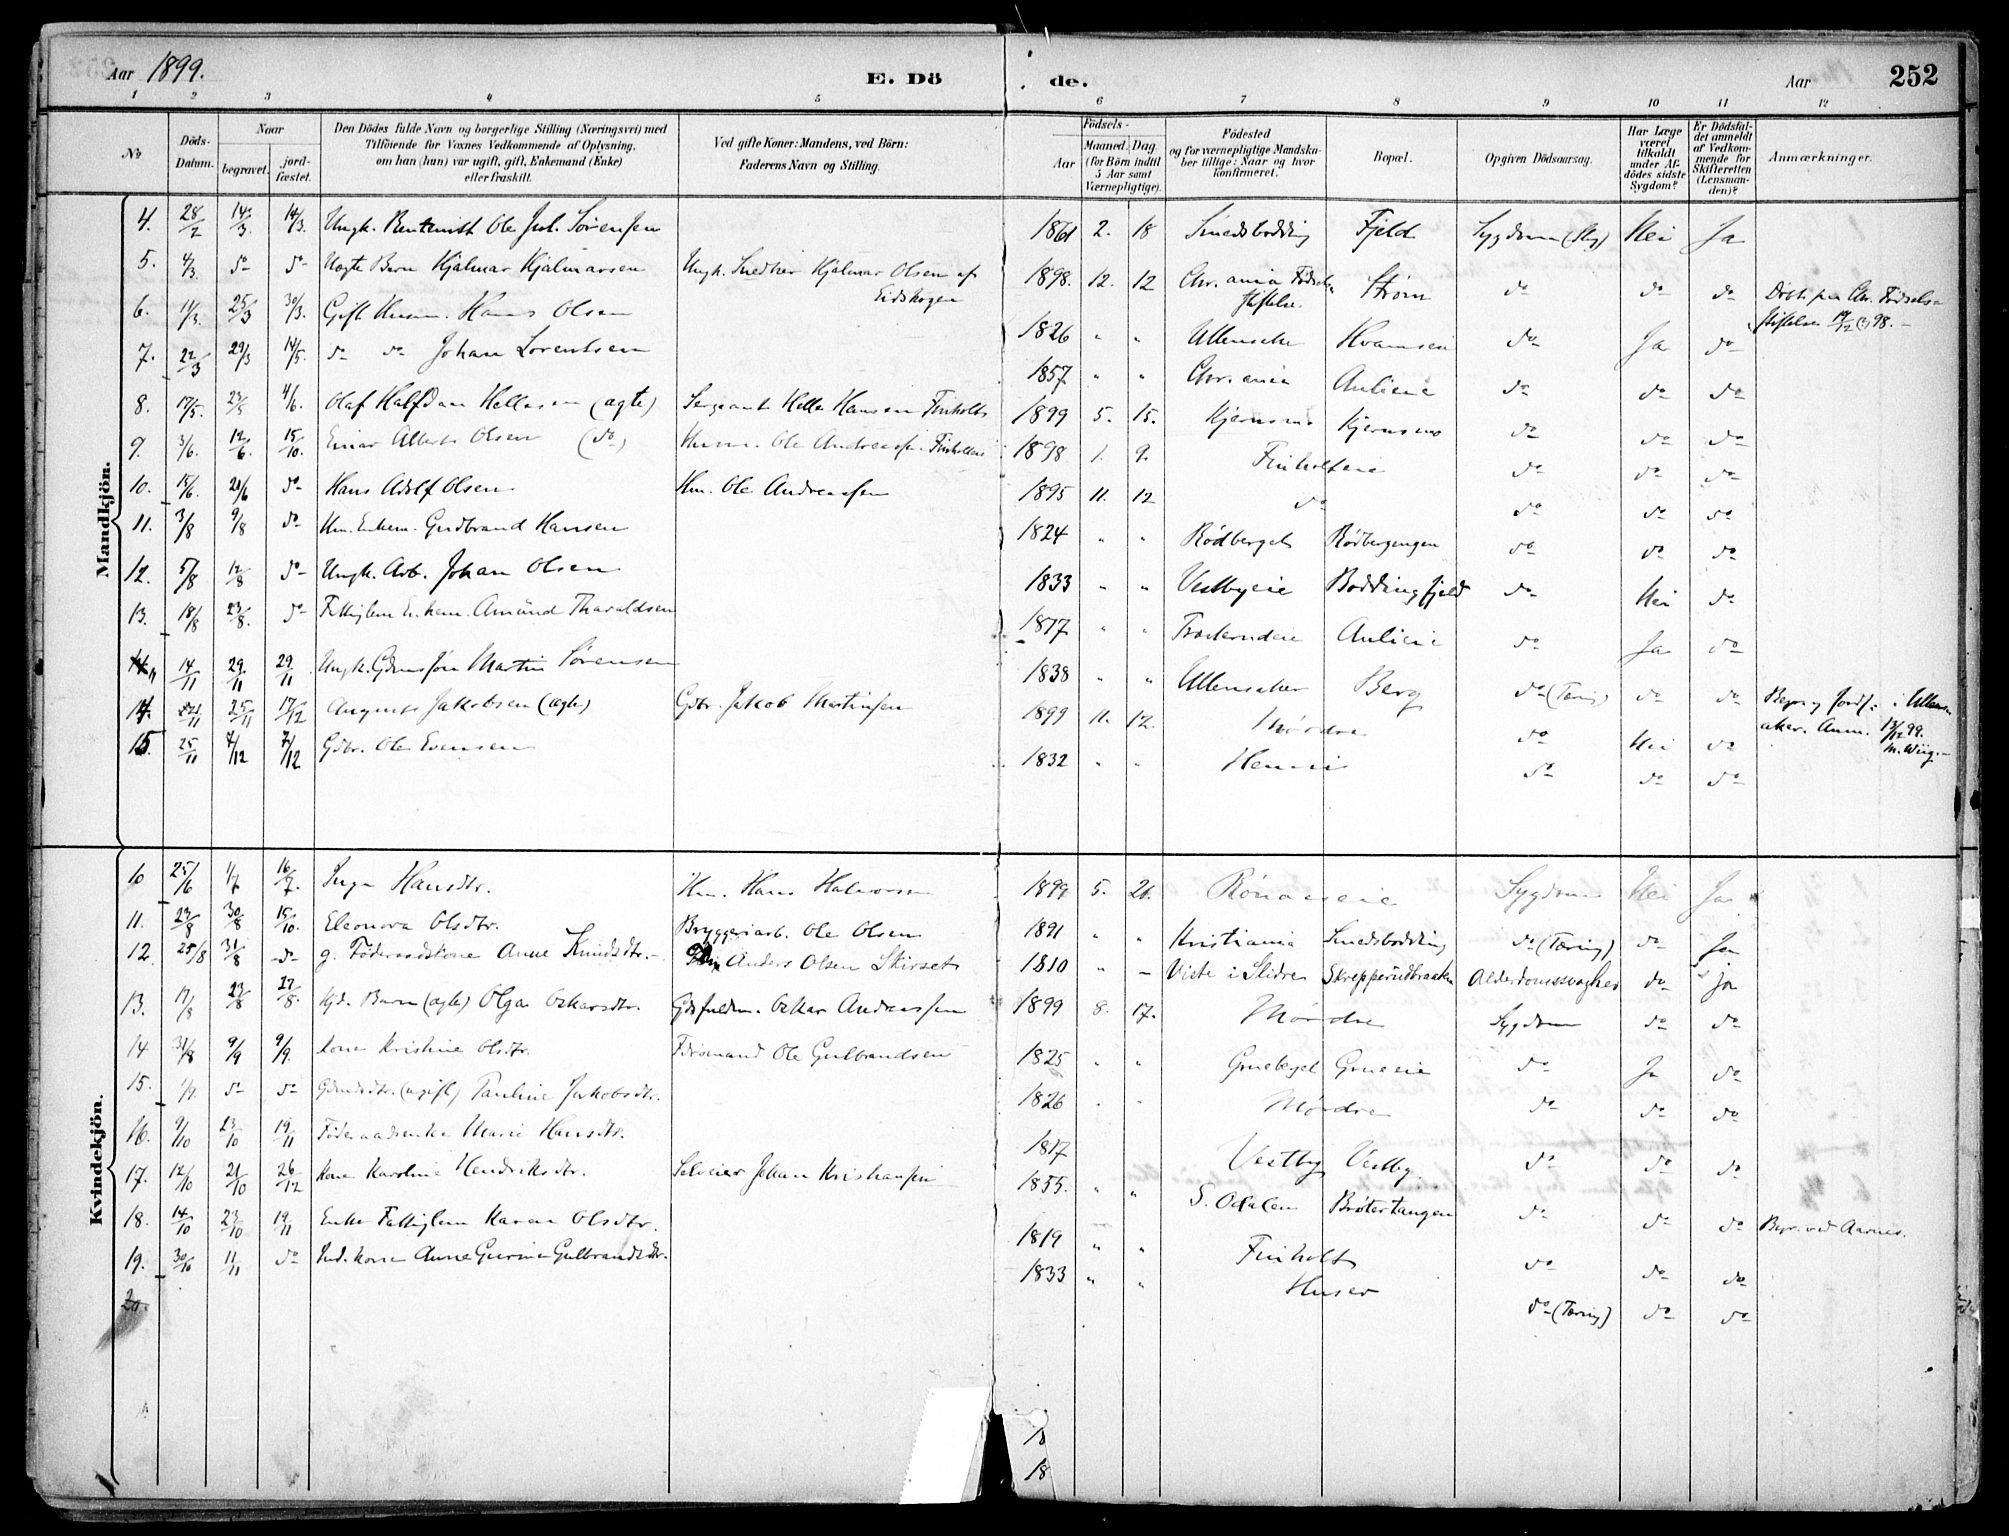 Aar 1899.
E. Dö
de.
Aar
252
1 2 3 4 5 6 7 8 9 10 11 12
No
Döds-Datum.
Naar
begravet.
jord-fæstet.
Den Dödes fulde Navn og borgerlige Stilling (Næringsvei) med
Tilföiende for Voxnes Vedkommende af Oplysning,
om han (hun) var ugift, gift, Enkemand (Enke)
eller fraskilt.
Ved gifte Koner: Mandens, ved Börn:
Faderens Navn og Stilling.
Födsels-
Aar
Maaned. Dag
(for Börn indtil
5 Aar samt
Værnepligtige).
Födested
og for værnepligtige Mandska-
ber tillige: Naar og hvor
konfirmeret.
Bopæl.
Opgiven Dödsaarsag.
Har Læge
været
tilkaldt
under Af-
dödes sidste
Sygdom?
Er Dödsfal-
det anmeldt
af Vedkom-
mende for
Skifteretten
(Lensman-
den)?
Anmærkninger.
Mandkjön.
4. 28/2 14/3. 14/3. Ungk. Ole Jul. Sørensen 1861 2. 18 Smedsbodding Fjeld Sygdom Nei Ja
5. 4/3. do do Uægte Barn Hjalmar Hjalmarsen Ungk. Snedker Hjalmar Olsen af Eidskogen 1898. 12. 12 Chr.ania Fødselsstiftelse. Strøm do do do Døbt paa Chr. Fødsels-
stiftelse 19/12 98.
6. 11/3. 25/3 30/3. Gift Husm. Hans Olsen 1826 " " Ullensaker Kvamseie do Ja do
7. 22/3 29/3 14/5. do do Johan Lorentsen 1857 " " Chr.ania Aulieie do do do
8. 17/5. 27/5 4/6. Olaf Halfdan Hellesen (ægte) Sergeant Helle Hansen Finholt 1899 5. 15. Kjernsmo Kjernsmo do do do
9. 3/6. 12/6. 15/10. Einar Albert Olsen (do) Husm. Ole Andreassen Finholteie 1898 1. 9. Finholteie do do do
10. 15/6. 20/6 do Hans Adolf Olsen Hm. Ole Andreassen 1895 11. 12 do do do do
11. 3/8 9/8 do Hm. Enkem. Gudbrand Hansen 1824 " " Rødberget Rødbergengen do do do
12. 5/8 12/8 do Ungk. Arb. Johan Olsen 1833 " " Vestbyeie Boddingfjeld do Nei do
13. 18/8 23/8. do Fattiglem Enkem. Amund Tharaldsen 1817 " " Aulieie do Ja do
14/11 29/11 29/11 Ungk. Gdmsøn Martin Sørensen 1838 " " Ullensaker Berg do (Tæring) do do Begr. og jordf. i Ullens-
aker. Anm. 13/12 99.
M. Wiig.
14. 25/11 17/12 August Jakobsen (ægte) Gdbr. Jakob Martinsen 1899 11. 12. Mørdre do Nei do
15. 25/11 7/12 7/12 Gdbr. Ole Evensen 1832 " " Hennie do do do
Kvindekjön.
10 25/6 1/7 16/7. Inga Hansdtr. Hm. Hans Halvorsen 1899 5. 26. Rønaaseie Sygdom Nei Ja
11. 23/8 30/8 15/10. Eleonora Olsdtr. Bryggeriarb. Ole Olsen 1891 " " Kristiania Smedsbodding do (Tæring) do Ja
12. 25/8 31/8 do g. Föderaadskone Anne Knudsdtr. Anders Olsen Skirset 1810 " – i Slidre Skrepperudbraaten Alderdomssvaghed do ja
13. 17/8 23/8 27/8. Barn (ægte) Olga Oskarsdtr. Oskar Andreassen 1899 8. 17. Mørdre Sygdom do do
14 31/8 9/9 9/9. Kone Kristine Olsdtr. Ole Gulbrandsen 1825 " " Grueberget Grueeie do Ja do
15. 1/9. do do Gdmdsdtr. (ugift) Pauline Jakobsdtr. 1826 " " Mørdre do do do
16. 9/10 23/10 19/11 Föderaadsenke Marie Hansdtr. 1817 Vestby Vestby do do do
17. 12/10 21/10 26/12 Kone Karoline Hendriksdtr. Selveier Johan Kristiansen 1855. " " S. Odalen Brøtertangen do do do Begr. ved Aarnes.
18. 14/10 23/10 19/11 Enke Fattiglem Karen Olsdtr. 1819 " " Finholt do do do
19. 30/10 11/11 do Ind. kone Anne Gurine Gulbrandsdtr. 1833 " " Huser do (Tæring) do do
20.
18
18